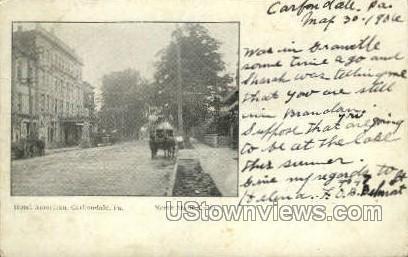 Carbondale, Pa.
May 30 - 1906
Was in Granville
some time ago and
Sarah was telling me
that you are still
in Brandon.
Suppose that you are going
to be at the Lake
this summer.
Give my regards to
Helena.
Hotel American, Carbondale, Pa.
North
www.TownsUSA.com